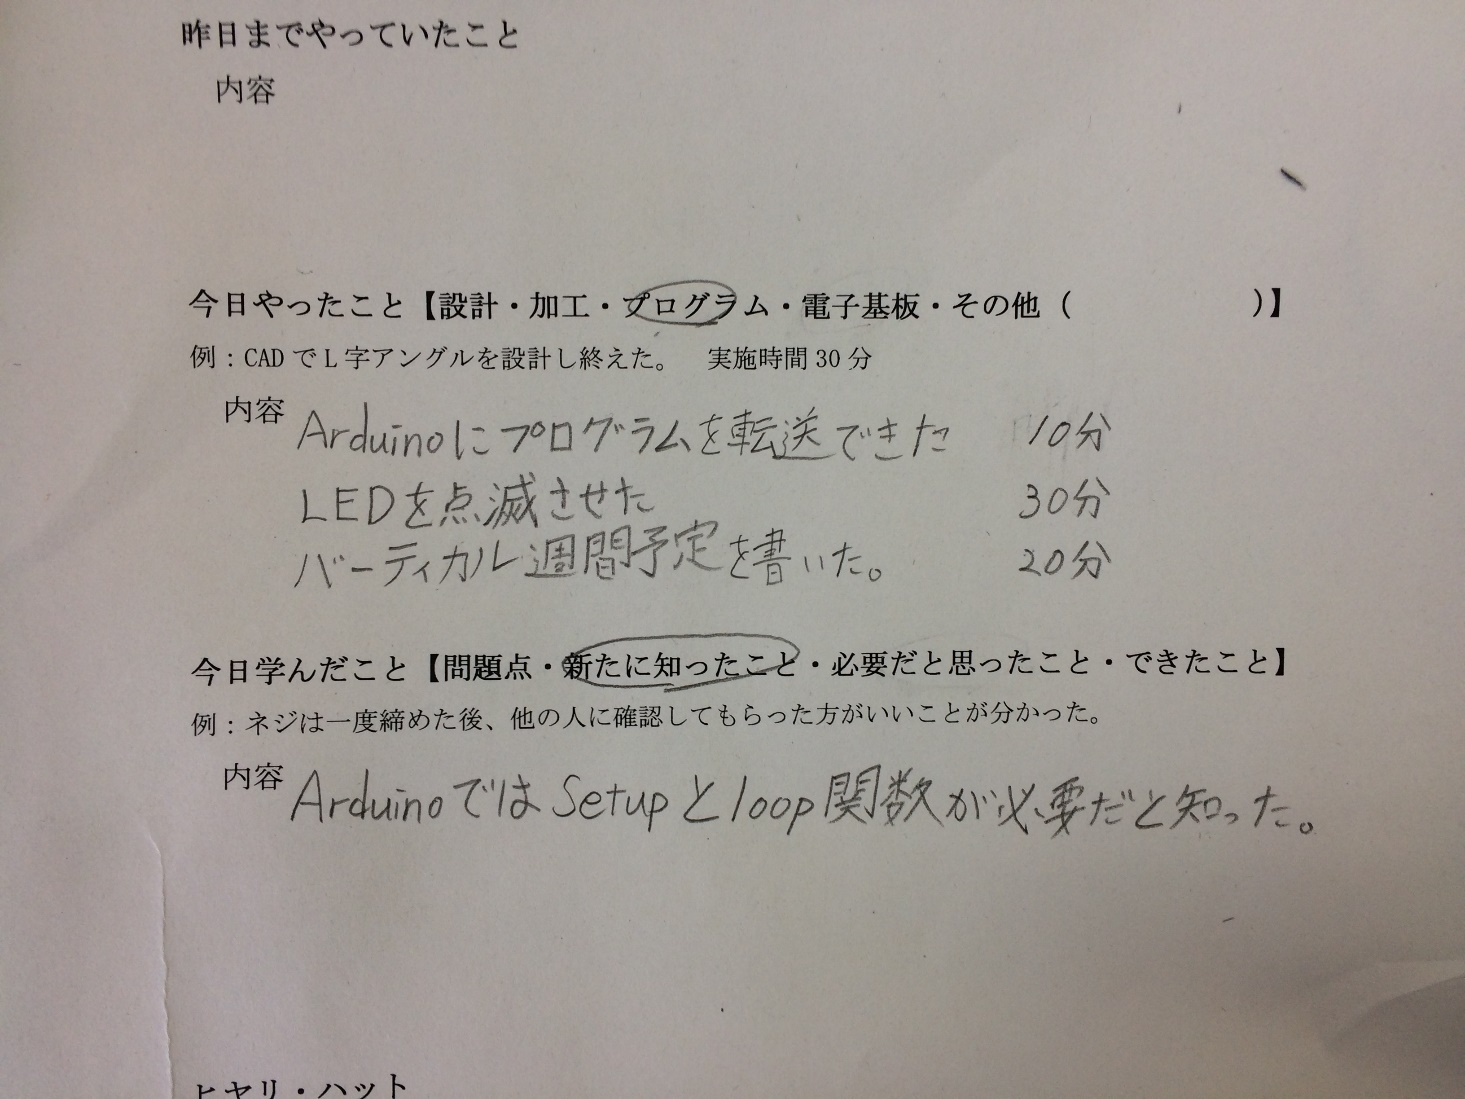 昨日までやっていたこと
内容
今日やったこと【設計・加工・プログラム・電子基板・その他（　　　　　　）】
例：CADでL字アングルを設計し終えた。　実施時間30分
内容 Arduinoにプログラムを転送できた　10分
LEDを点滅させた　30分
バーティカル週間予定を書いた。　20分
今日学んだこと【問題点・新たに知ったこと・必要だと思ったこと・できたこと】
例：ネジは一度締めた後、他の人に確認してもらった方がいいことが分かった。
内容 ArduinoではSetupとloop関数が必要だと知った。
ヒヤリ・ハット